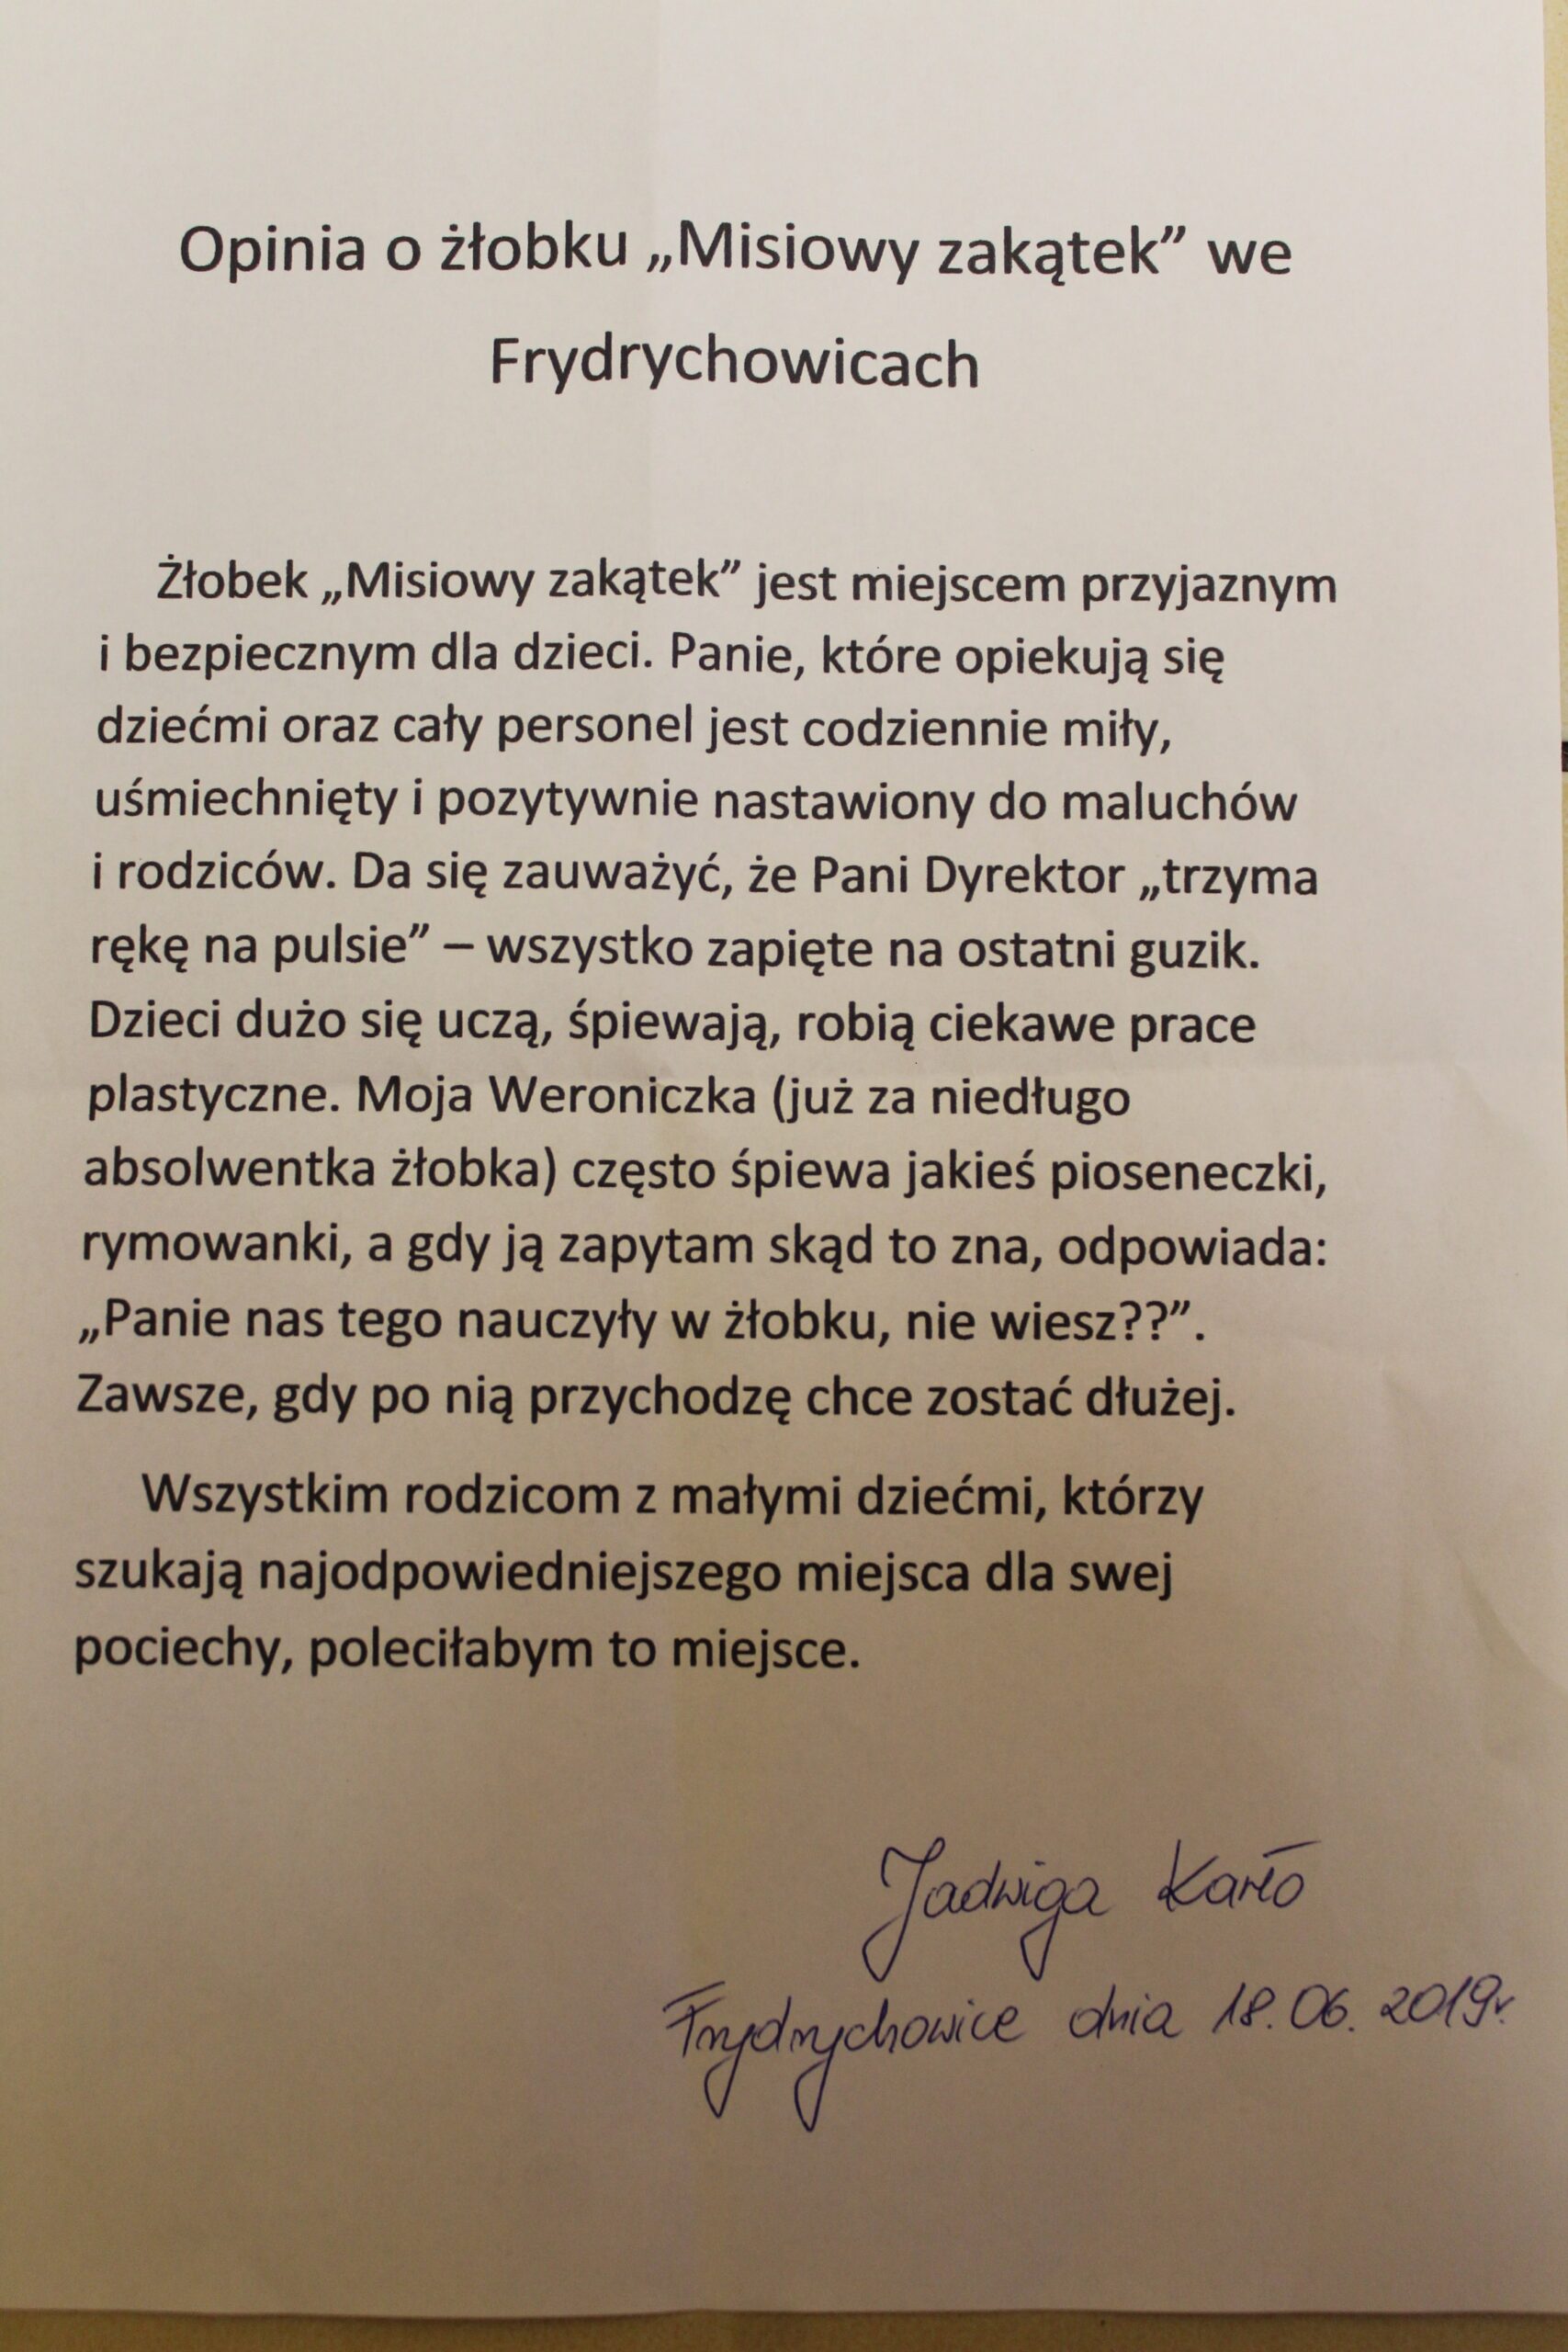 Opinia o żłobku „Misiowy zakątek” we
Frydrychowicach
Żłobek „Misiowy zakątek” jest miejscem przyjaznym
i bezpiecznym dla dzieci. Panie, które opiekują się
dziećmi oraz cały personel jest codziennie miły,
uśmiechnięty i pozytywnie nastawiony do maluchów
i rodziców. Da się zauważyć, że Pani Dyrektor „trzyma
rękę na pulsie” – wszystko zapięte na ostatni guzik.
Dzieci dużo się uczą, śpiewają, robią ciekawe prace
plastyczne. Moja Weroniczka (już za niedługo
absolwentka żłobka) często śpiewa jakieś pioseneczki,
rymowanki, a gdy ją zapytam skąd to zna, odpowiada:
„Panie nas tego nauczyły w żłobku, nie wiesz??”.
Zawsze, gdy po nią przychodzę chce zostać dłużej.
Wszystkim rodzicom z małymi dziećmi, którzy
szukają najodpowiedniejszego miejsca dla swej
pociechy, poleciłabym to miejsce.
Jadwiga
Frydrychowice dnia 18.06.2019r.